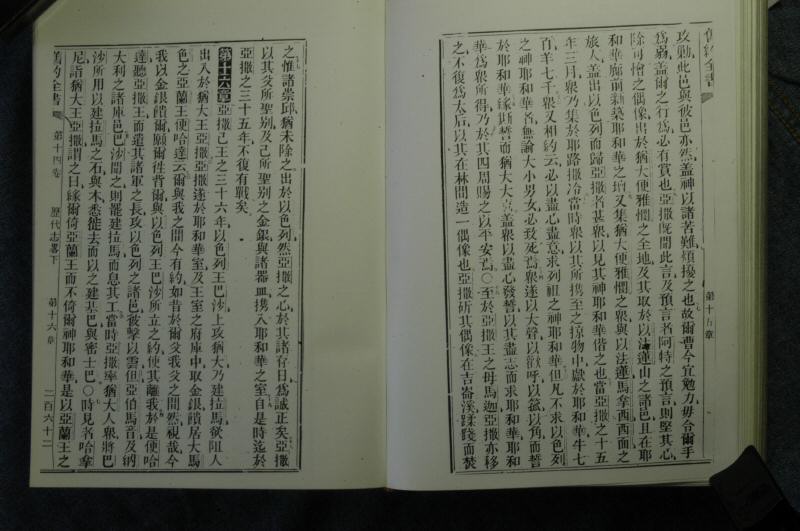 舊約全書
第十五章
攻勦此邑與彼邑亦然蓋神以諸苦難煩擾之也故爾曹今宜勉力毋令爾手
爲弱蓋爾之行爲必有賞也亞撒既聞此言及預言者阿特之預言則堅其心
除可憎之偶像出於猶大便雅憫之全地及其取於以法蓮山之諸邑且在耶
和華廊前新築耶和華之壇又集猶大便雅憫之衆與以法蓮馬拿西西面之
旅人蓋出以色列而歸亞撒者甚衆以見其神耶和華偕之也當亞撒之十五
年三月衆乃集於耶路撒冷當時衆以其所携至之掠物中獻於耶和華牛七
百羊七千衆又相約云必以盡心盡意求列祖之神耶和華但凡不求以色列
之神耶和華者無論大小男女必致死焉衆遂以大聲以歡呼以號以角而誓
於耶和華緣斯誓而猶大大喜蓋衆以盡心發誓以其盡志而求耶和華耶和
華爲衆所得乃於其四周賜之以平安焉○至於亞撒王之母馬迦亞撒亦移
之不復爲太后以其在林間造一偶像也亞撒斫其偶像在吉崙溪蹂踐而焚
之惟諸崇邱猶未除之出於以色列然亞撒之心於其諸存日爲誠正矣亞撒
以其父所聖別及己所聖別之金銀與諸器皿携入耶和華之室自是時迄於
亞撒之三十五年不復有戰矣
第十六章亞撒己王之三十六年以色列王巴沙上攻猶大乃建拉馬欲阻人
出入於猶大王亞撒亞撒遂於耶和華室及王室之府庫中取金銀饋居大馬
色之亞蘭王便哈達云爾與我之間今有約如昔於爾父我父之間然視哉今
我以金銀饋爾願爾徃背爾與以色列王巴沙所立之約使其離我於是便哈
達聽亞撒王而遣其諸軍之長攻以色列之諸邑彼擊以雲但亞伯馬音及納
大利之諸庫邑巴沙聞之則罷建拉馬而息其工當時亞撒率猶大人衆將巴
沙所用以建拉馬之石與木悉徙去而以之建基巴與密士巴○時見者哈拿
尼詣猶大王亞撒謂之曰緣爾倚亞蘭王而不倚爾神耶和華是以亞蘭王之
舊約全書
第十四卷
歷代志畧下
第十六章
二百六十二